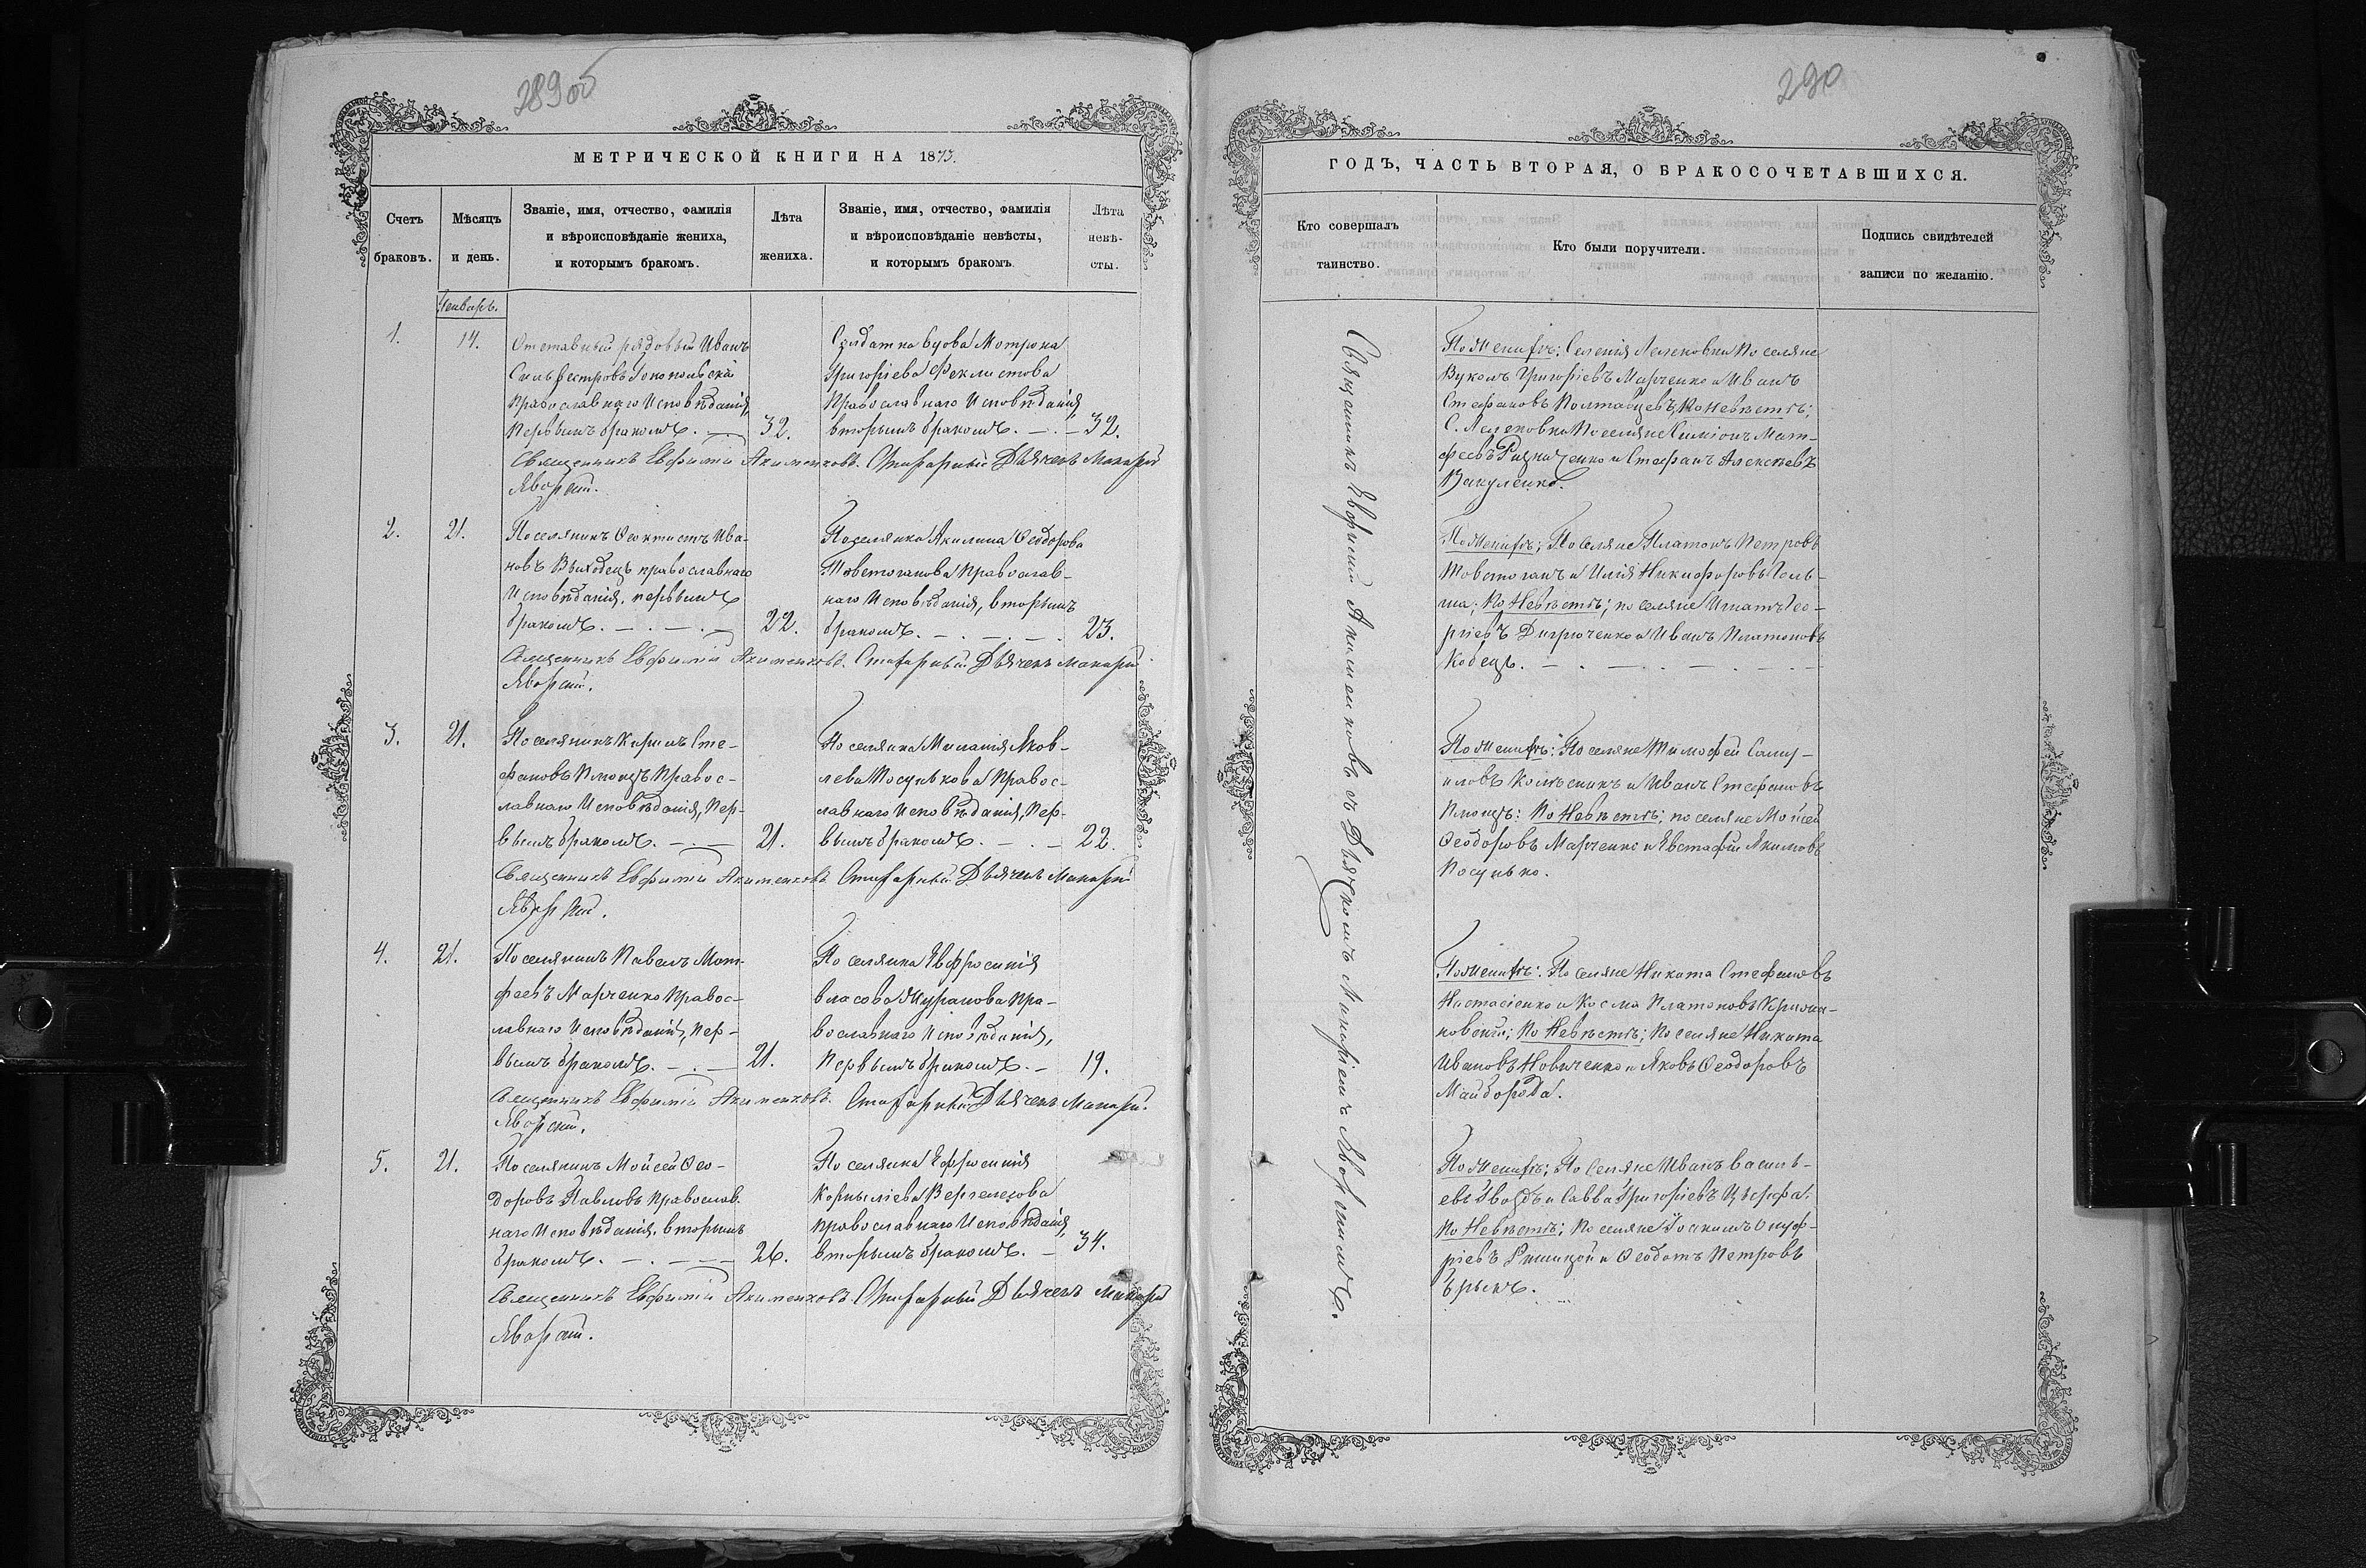 289об
МЕТРИЧЕСКОЙ КНИГИ НА 1873.
Счетъ браковъ.
Мѣсяцъ и день.
Званіе, имя, отчество, фамилія
и вѣроисповѣданіе жениха,
и которымъ бракомъ.
Лѣта жениха.
Званіе, имя, отчество, фамилія
и вѣроисповѣданіе невѣсты,
и которымъ бракомъ
Лѣта невѣ-
сты.
Генварь.
1.
14.
Отставный рядовый Иванъ
Сильвестровъ
Православнаго Исповѣданія,
Первымъ бракомъ.
32.
Солдатка вдова Мотрона
Григоріева Феклистова
Православнаго Исповѣданія,
вторымъ бракомъ.
32.
Священникъ Евфимій Акименковъ. Дьячекъ Макарій
Яворскій.
2.
21.
Поселянинъ Феоктистъ Ива-
новъ Выходецъ православнаго
Исповѣданія, первымъ
бракомъ.
22.
Поселянка Акилина Ѳеодорова
Товстоганова Православ-
наго Исповѣданія, вторымъ
бракомъ.
23.
Священникъ Евфимій Акименковъ. Дьячекъ Макарій
Яворскій.
3.
21.
Поселянинъ Кирилъ Сте-
фановъ Православ-
лавнаго Исповѣданія, Пер-
вымъ бракомъ.
21.
Поселянка Меланія Яков-
лева Посунькова Правос-
лавнаго Исповѣданія, Пер-
вымъ бракомъ.
22.
Священникъ Евфимій Акименковъ Дьячекъ Макарій
Яворскій.
4.
21.
Поселянинъ Павелъ Мат-
феевъ Марченко Правос-
лавнаго Исповѣданія, Пер-
вымъ бракомъ.
21.
Поселянка Евфросинія
Власова Журанова Пра-
вославнаго Исповѣданія,
Первымъ бракомъ.
19.
Священникъ Евфимій Акименковъ. Дьячекъ Макарій.
Яворскій.
5.
21.
Поселянинъ Мойсей Ѳео-
доровъ Павловъ Православ.
наго Исповѣданія, вторымъ
бракомъ.
26.
Поселянка Ефросинія
Корниліева
православнаго Исповѣданія,
вторымъ бракомъ.
34.
Священникъ Евфимій Акименковъ. Дьячекъ Макарій
Яворскій.
290
ГОДЪ, ЧАСТЬ ВТОРАЯ, О БРАКОСОЧЕТАВШИХСЯ.
Кто совершалъ
таинство.
Кто были поручители.
Подпись свидѣтелей
записи по желанію.
Священникъ Евфимій Акименковъ съ Дьячкомъ Макаріемъ Яворскимъ.
По Женихѣ: Селенія Поселяне
Вуколъ Григоріевъ Марченко и Иванъ
Стефановъ Полтавцевъ, По Невѣстѣ;
С. Поселяне Симіонъ Мат-
феевъ и Стефанъ Алексѣевъ
Вакуленко.
По Женихѣ; Поселяне Платонъ Петровъ
Товстоганъ и Илія Никифоровъ
По Невѣстѣ; поселяне Игнатъ Гео-
ргіевъ и Иванъ Платоновъ
Кобецъ.
По Женихѣ: Поселяне Тимофей Саму-
иловъ Колѣсникъ и Иванъ Стефановъ
По Невѣстѣ; поселяне Мойсей
Ѳеодоровъ Марченко и Евстафій Акимовъ
Посунько.
По Женихѣ: Поселяне Никита Стефановъ
Настасіенко и Косма Платоновъ
По Невѣстѣ; Поселяне Никита
Ивановъ Новиченко и Яковъ Ѳеодоровъ
Майборода.
По Женихѣ; Поселяне Иванъ Василь-
евъ и Савва Григоріевъ
По Невѣстѣ; Поселяне Іоакимъ Онуф-
ріевъ и Ѳеодотъ Петровъ